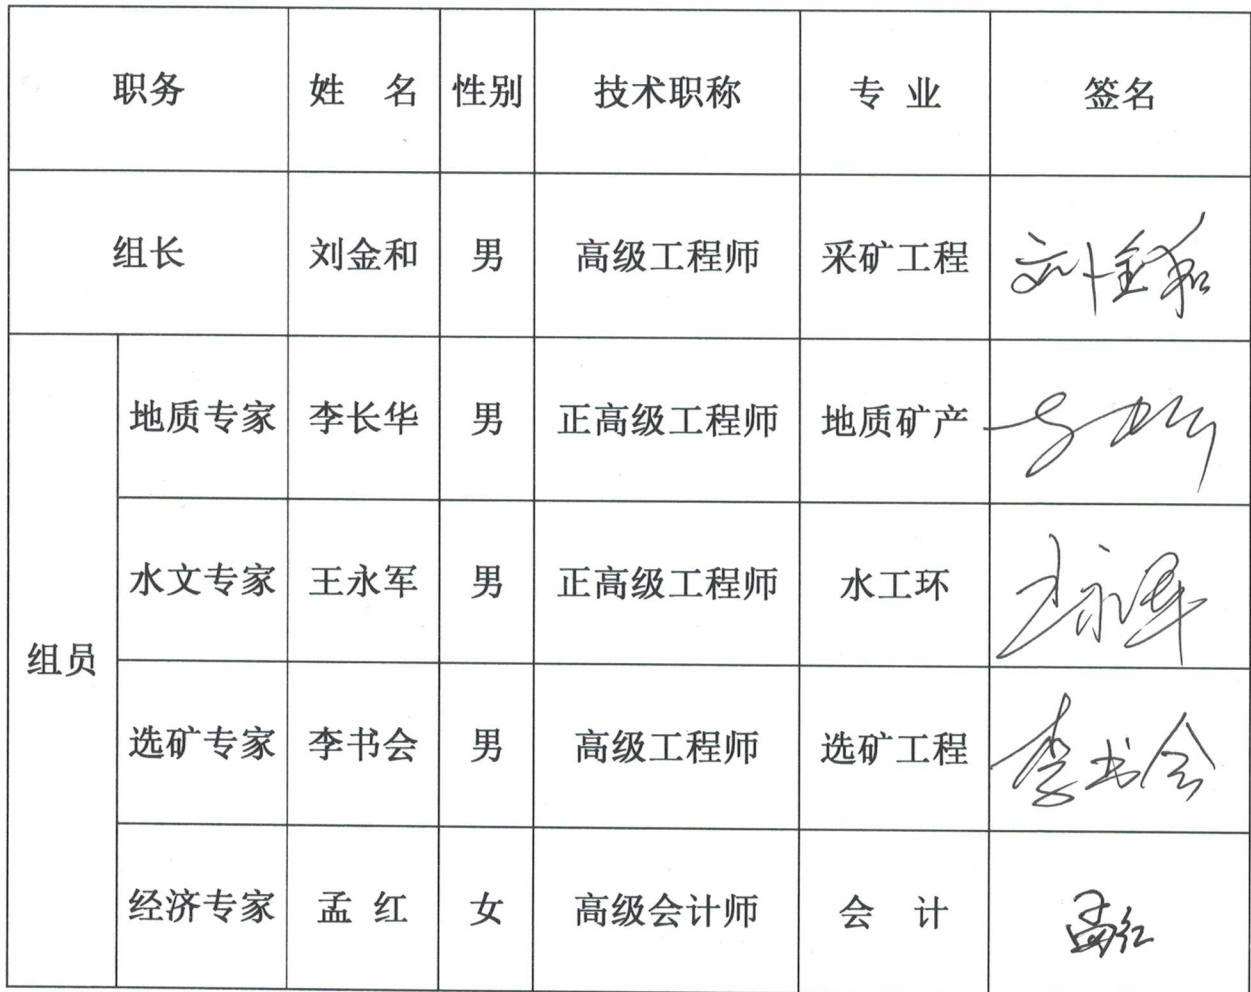 职务 姓 名 性别 技术职称 专 业 签名
组长 刘金和 男 高级工程师 采矿工程 刘金和
组员
地质专家 李长华 男 正高级工程师 地质矿产
水文专家 王永军 男 正高级工程师 水工环 王永军
选矿专家 李书会 男 高级工程师 选矿工程 李书会
经济专家 孟 红 女 高级会计师 会 计 孟红